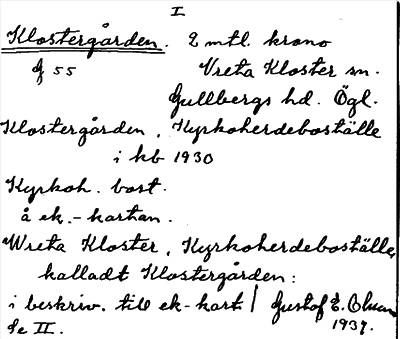 I
Klostergården. 2 mtl. krono
J 55 Vreta Kloster sn.
Gullbergs hd. Ögl.
Klostergården, Kyrkoherdeboställe
i kb 1930
Kyrkoh. bost.
å ek.-kartan.
Wreta Kloster, Kyrkoherdeboställe,
kalladt Klostergården:
i beskriv. till ek-kart / Gustof E.
Se II. 1937.